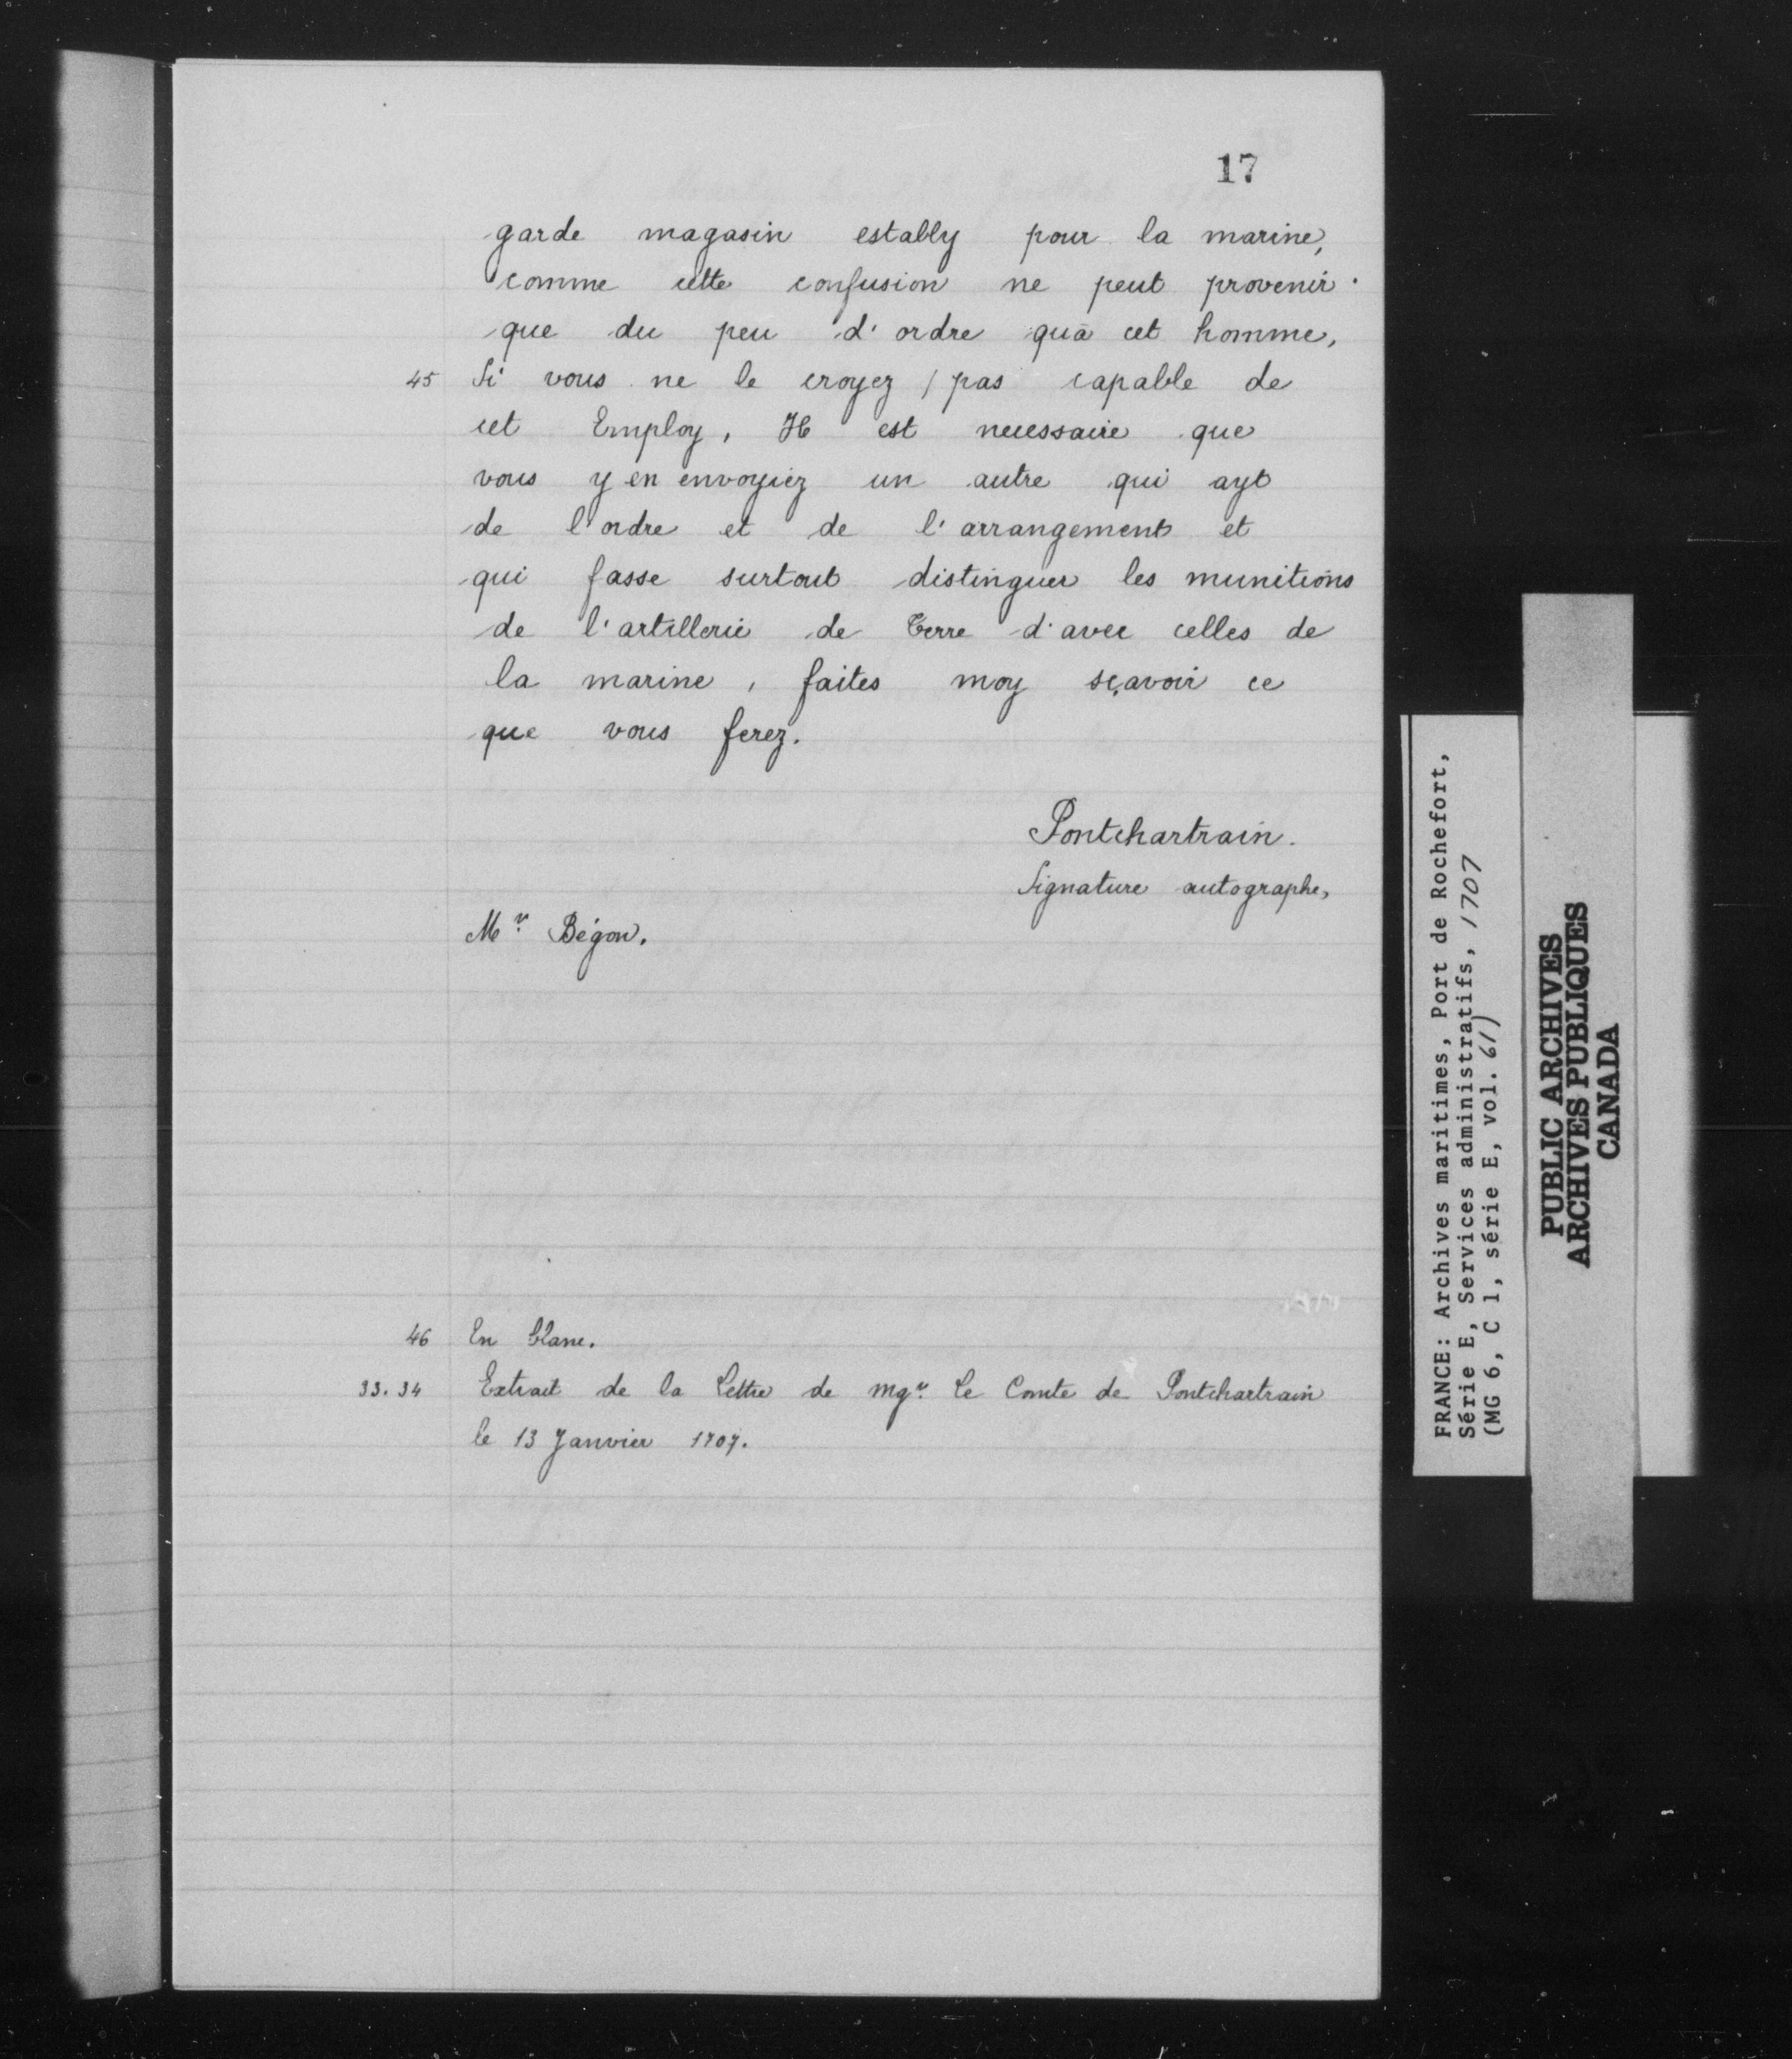 17
garde magasin establly pour la marine,
comme cette confusion ne peut provenir
que du peu d'ordre qu'a cet homme,
45 Si vous ne le croyez / pas capable de
cet Employ, Il est necessaire que
vous y en envoyiez un autre qui ayt
de l'ordre et de l'arrangement et
qui fasse surtout distinguer les munitions
de l'artillerie de Terre d'avec celles de
la marine, faites moy sçavoir ce
que vous ferez.
Pontchartrain.
Signature autographe,
Mr. Bégon.
46 En blanc.
33.34 Extrait de la Lettre de mgr. Le Comte de Pontchartrain
le 13 Janvier 1707.
FRANCE: Archives maritimes, Port de Rochefort,
Série E, Services administratifs, 1707
(MG 6, C 1, série E, vol. 611)
PUBLIC ARCHIVES
ARCHIVES PUBLIQUES
CANADA